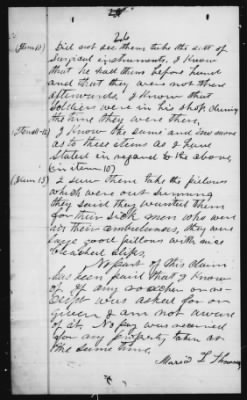 26
(Item 10) Did not see them take the sett of
Surgical instruments, I know
that he had them before hand
and that they were not there
afterwards, I know that
Soldiers were in his shop during
the time they were there,
I know the same and
as to these items as I have
Stated in regard to the above,
(in item 10)
(Item 13) I saw them take the pillows
which were out sunning
they said they wanted them
for their sick men who were
in their ambulances, they were
large good pillows with nice
bleached slips.
No part of this claim
has been paid that I know
of. If any voucher or re-
ceipt was asked for or
given I am not aware
of it. No pay was received
for any property taken at
the same time,